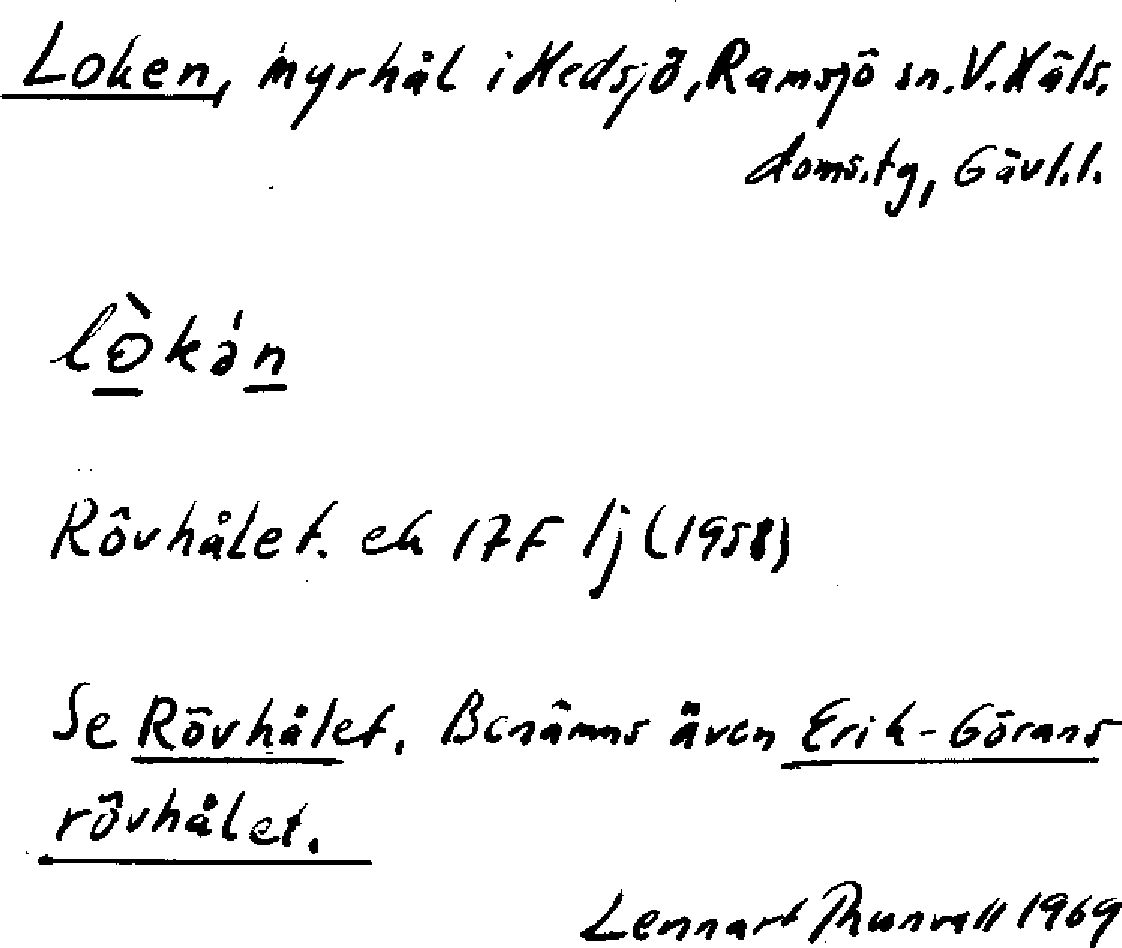 Loken, myrhål i Hedsjö, Ramsjö sn. V. Häls.
doms.tg, Gävl.l.
lòkə́n
Rövhålet. ek 17F lj (1958)
Se Rövhålet. Benämns även Erik-Görans
rövhålet.
Lennart Thunvall 1969